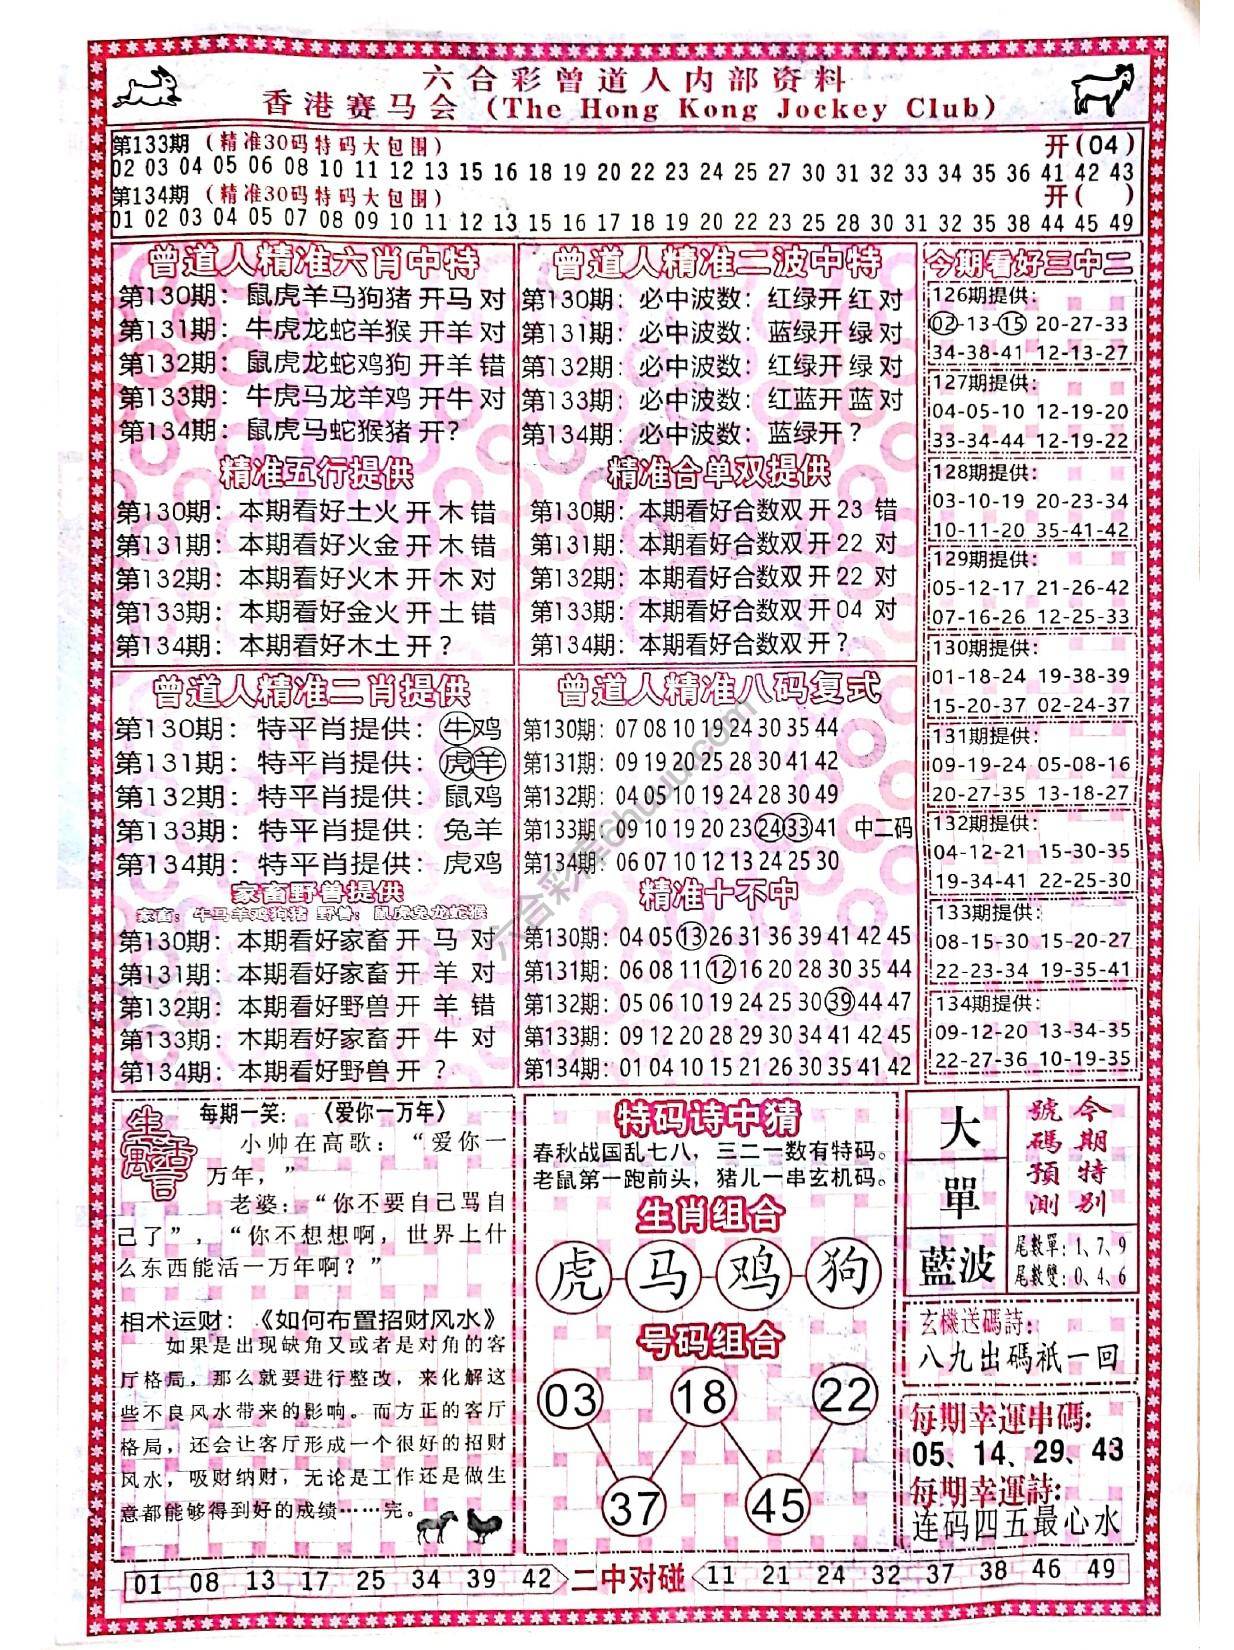 六合彩曾道人内部资料
香港赛马会 (The Hong Kong Jockey Club)
第133期 (精准30码特码大包围) 开(04)
02 03 04 05 06 08 10 11 12 13 15 16 18 19 20 22 23 24 25 27 30 31 32 33 34 35 36 41 42 43
第134期 (精准30码特码大包围) 开( )
01 02 03 04 05 07 08 09 10 11 12 13 15 16 17 18 19 20 22 23 25 28 30 31 32 35 38 44 45 49
曾道人精准六肖中特
第130期：鼠虎羊马狗猪 开马 对
第131期：牛虎龙蛇羊猴 开羊 对
第132期：鼠虎龙蛇鸡狗 开羊 错
第133期：牛虎马龙羊鸡 开牛 对
第134期：鼠虎马蛇猴猪 开？
精准五行提供
第130期：本期看好土火 开 木 错
第131期：本期看好火金 开 木 错
第132期：本期看好火木 开 木 对
第133期：本期看好金火 开 土 错
第134期：本期看好木土 开？
曾道人精准二波中特
第130期：必中波数：红绿开 红 对
第131期：必中波数：蓝绿开 绿 对
第132期：必中波数：红绿开 绿 对
第133期：必中波数：红蓝开 蓝 对
第134期：必中波数：蓝绿开？
精准合单双提供
第130期：本期看好合数双 开 23 错
第131期：本期看好合数双 开 22 对
第132期：本期看好合数双 开 22 对
第133期：本期看好合数双 开 04 对
第134期：本期看好合数双 开？
今期看好三中二
126期提供：
02-13-15 20-27-33
34-38-41 12-13-27
127期提供：
04-05-10 12-19-20
33-34-44 12-19-22
128期提供：
03-10-19 20-23-34
10-11-20 35-41-42
129期提供：
05-12-17 21-26-42
07-16-26 12-25-33
130期提供：
01-18-24 19-38-39
15-20-37 02-24-37
131期提供：
09-19-24 05-08-16
20-27-35 13-18-27
132期提供：
04-12-21 15-30-35
19-34-41 22-25-30
133期提供：
08-15-30 15-20-27
22-23-34 19-35-41
134期提供：
09-12-20 13-34-35
22-27-36 10-19-35
曾道人精准二肖提供
第130期：特平肖提供：牛鸡
第131期：特平肖提供：虎羊
第132期：特平肖提供：鼠鸡
第133期：特平肖提供：兔羊
第134期：特平肖提供：虎鸡
家畜野兽提供
家畜：牛马羊鸡狗猪 野兽：鼠虎兔龙蛇猴
第130期：本期看好家畜 开 马 对
第131期：本期看好家畜 开 羊 对
第132期：本期看好野兽 开 羊 错
第133期：木期看好家畜 开 牛 对
第134期：本期看好野兽 开 ？
曾道人精准八码复式
第130期：07 08 10 19 24 30 35 44
第131期：09 19 20 25 28 30 41 42
第132期：04 05 10 19 24 28 30 49
第133期：09 10 19 20 23 24 33 41 中二码
第134期：06 07 10 12 13 24 25 30
精准十不中
第130期：04 05 13 26 31 36 39 41 42 45
第131期：06 08 11 12 16 20 28 30 35 44
第132期：05 06 10 19 24 25 30 39 44 47
第133期：09 12 20 28 29 30 34 41 42 45
第134期：01 04 10 15 21 26 30 35 41 42
六合彩库chuu.com
生活寓言
每期一笑：《爱你一万年》
小帅在高歌：“爱你一
万年，”
老婆：“你不要自己骂自
己了”，“你不想想啊，世界上什
么东西能活一万年啊？”
相术运财：《如何布置招财风水》
如果是出现缺角又或者是对角的客
厅格局，那么就要进行整改，来化解这
些不良风水带来的影响。而方正的客厅
格局，还会让客厅形成一个很好的招财
风水，吸财纳财，无论是工作还是做生
意都能够得到好的成绩……完。
特码诗中猜
春秋战国乱七八，三二一数有特码。
老鼠第一跑前头，猪儿一串玄机码。
生肖组合
虎 马 鸡 狗
号码组合
03 18 22
37 45
大
單
藍波
今期特别
號碼預測
尾數單：1、7、9
尾數雙：0、4、6
玄機送碼詩：
八九出碼祇一回
每期幸運串碼：
05、14、29、43
每期幸運詩：
连码四五最心水
01 08 13 17 25 34 39 42 二中对碰 11 21 24 32 37 38 46 49